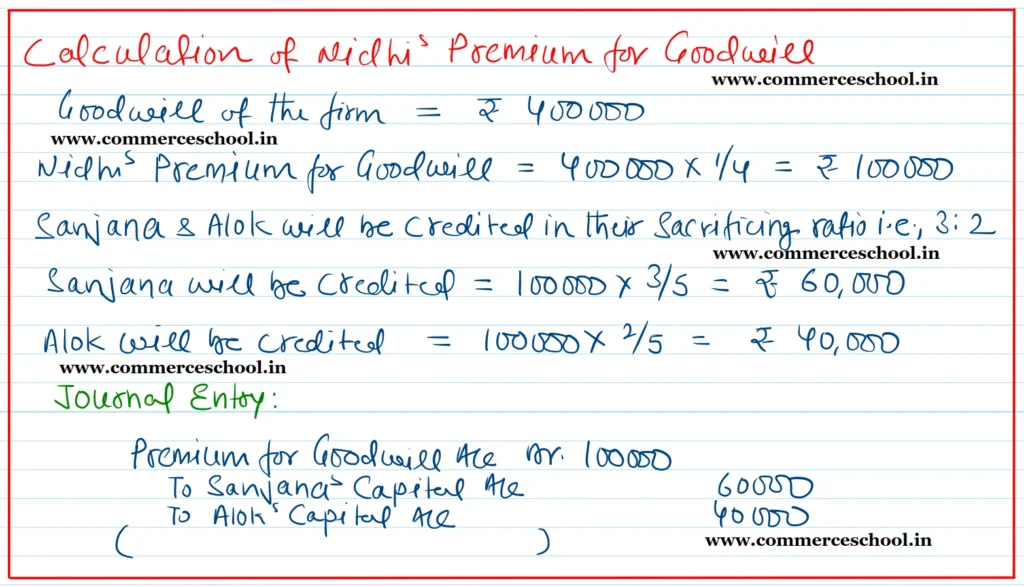 Calculation of Nidhi's Premium for Goodwill
www.commerceschool.in
Goodwill of the firm = ₹ 400000
www.commerceschool.in
Nidhi's Premium for Goodwill = 400000 × 1/4 = ₹ 100000
Sanjana & Alok will be credited in their Sacrificing ratio i.e., 3:2
www.commerceschool.in
Sanjana will be credited = 100000 × 3/5 = ₹ 60,000
Alok will be credited = 100000 × 2/5 = ₹ 40,000
www.commerceschool.in
Journal Entry:
Premium for Goodwill A/c Dr. 100000
To Sanjana's Capital A/c 60000
To Alok's Capital A/c 40000
( )
www.commerceschool.in